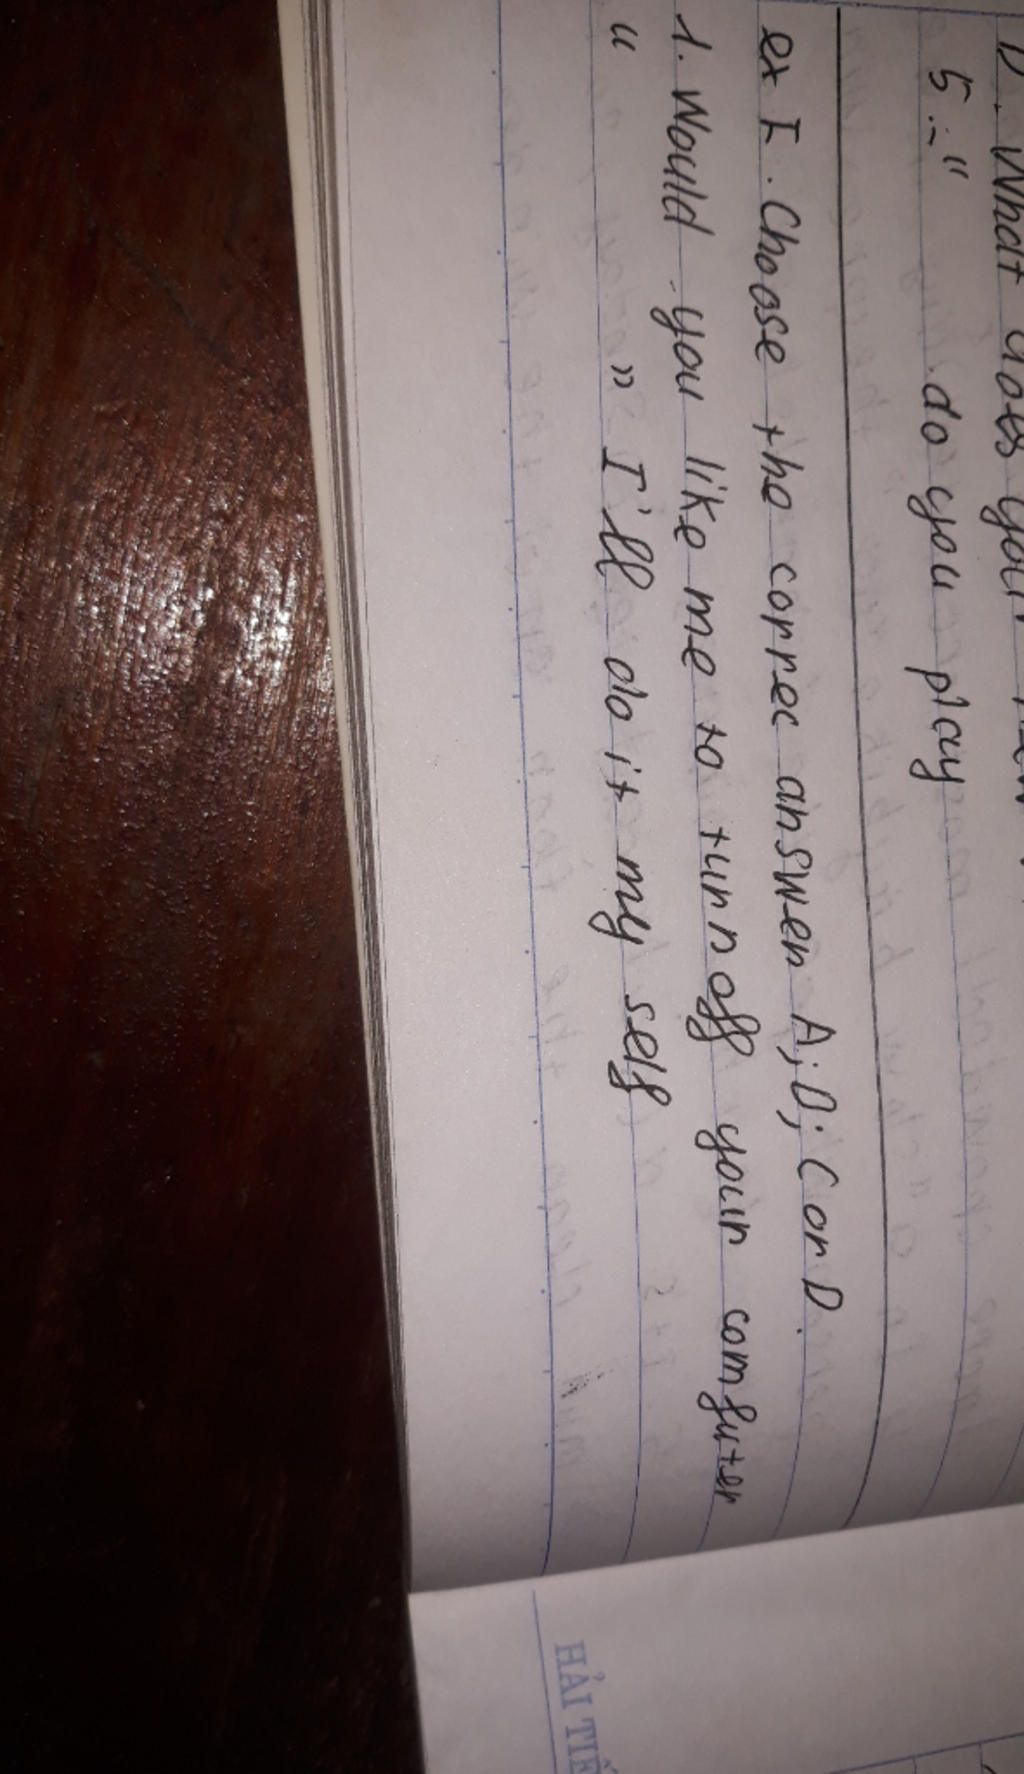 D. What does your
5.-" do you play
ex I. Choose the correc answer A; D; C or D.
1. Would you like me to turn off your computer
" " I'll do it my self
HẢI TIẾ